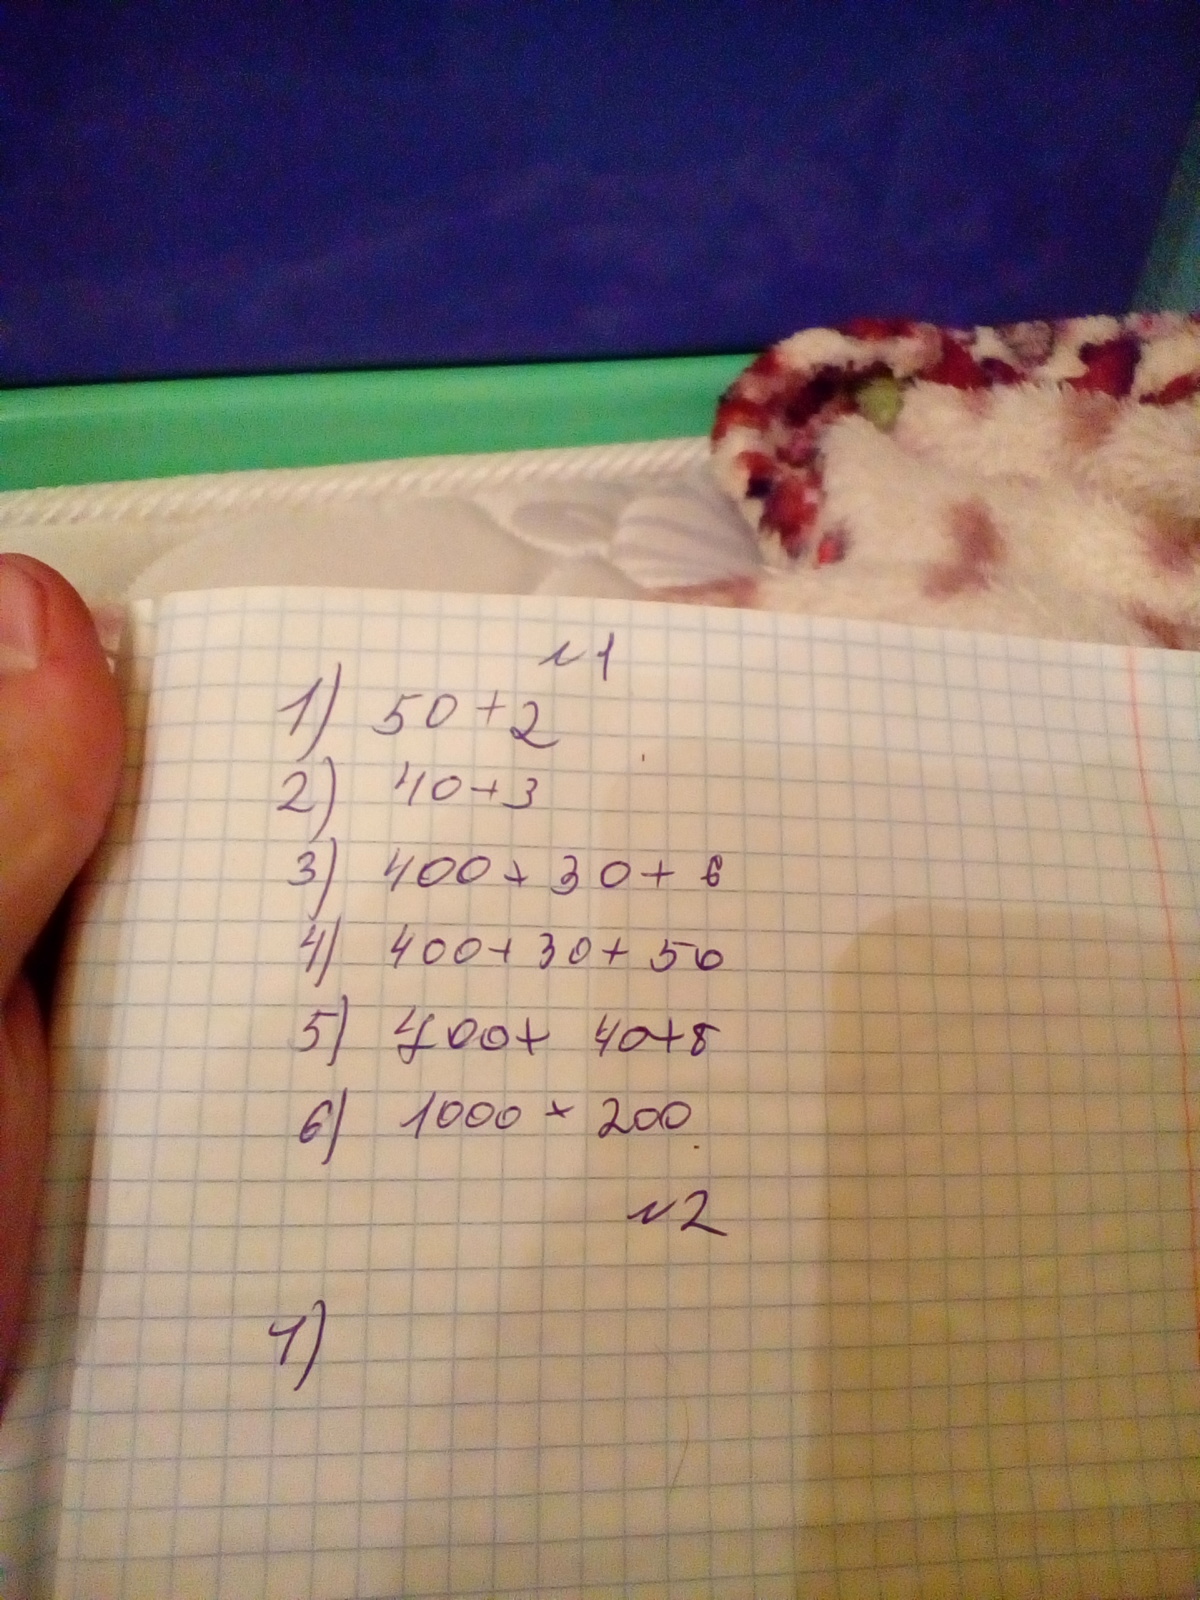 №1
1) 50+2
2) 40+3
3) 400+30+6
4) 400+30+50
5) 400+ 40+8
6) 1000+200
№2
1)